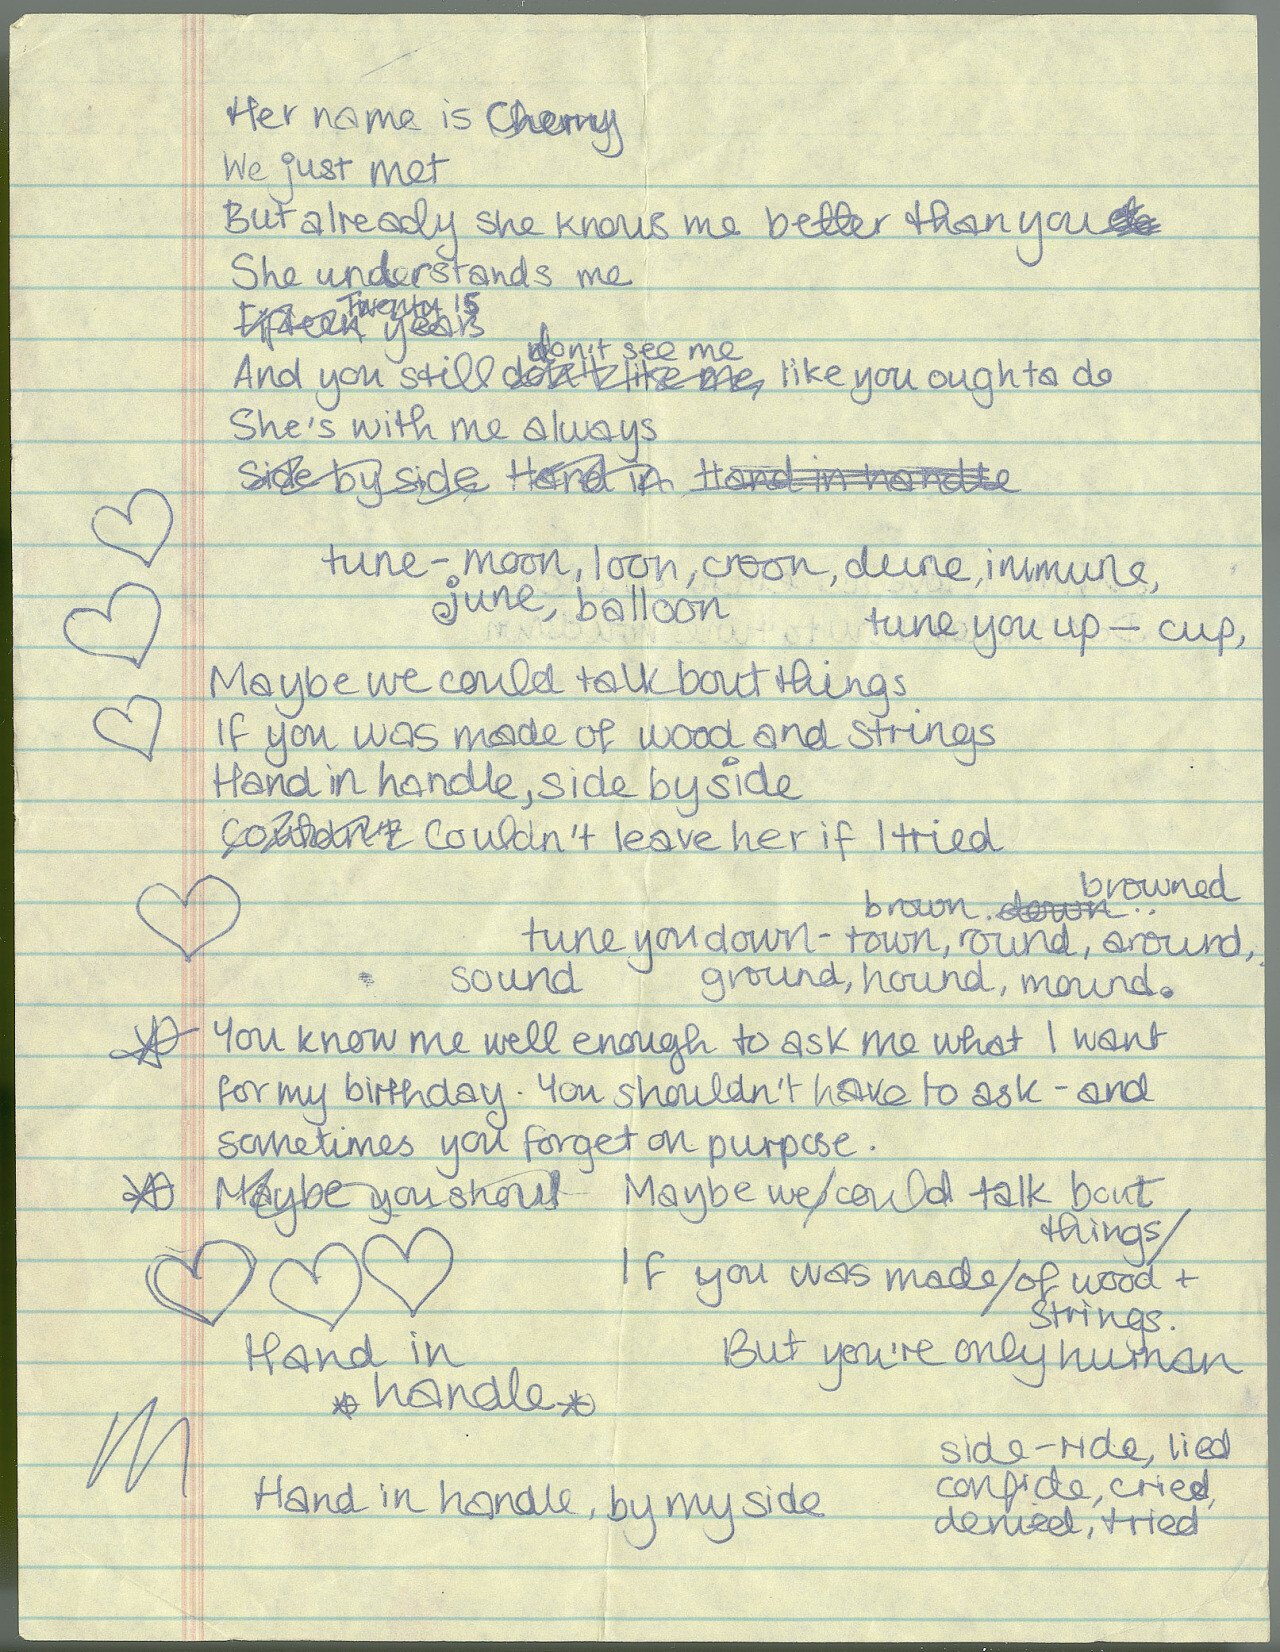 Her name is Cherry
We just met
But already she knows me better than you
She understands me
Twenty 15
Fifteen years
don't see me
And you still don't like me, like you oughta do
She's with me always
Side by side Hand in Hand in handle
tune - moon, loon, croon, dune, immune,
june, balloon
tune you up - cup,
Maybe we could talk bout things
If you was made of wood and strings
Hand in handle, side by side
Couldn't Couldn't leave her if I tried
browned
brown . down ..
tune you down - town, round, around,
sound ground, hound, mound.
You know me well enough to ask me what I want
for my birthday. You shouldn't have to ask - and
sometimes you forget on purpose.
Maybe you shoul Maybe we/could talk bout
things/
If you was made/of wood +
strings.
Hand in But you're only human
handle
side - ride, lied
Hand in handle, by my side confide, cried,
denied, tried